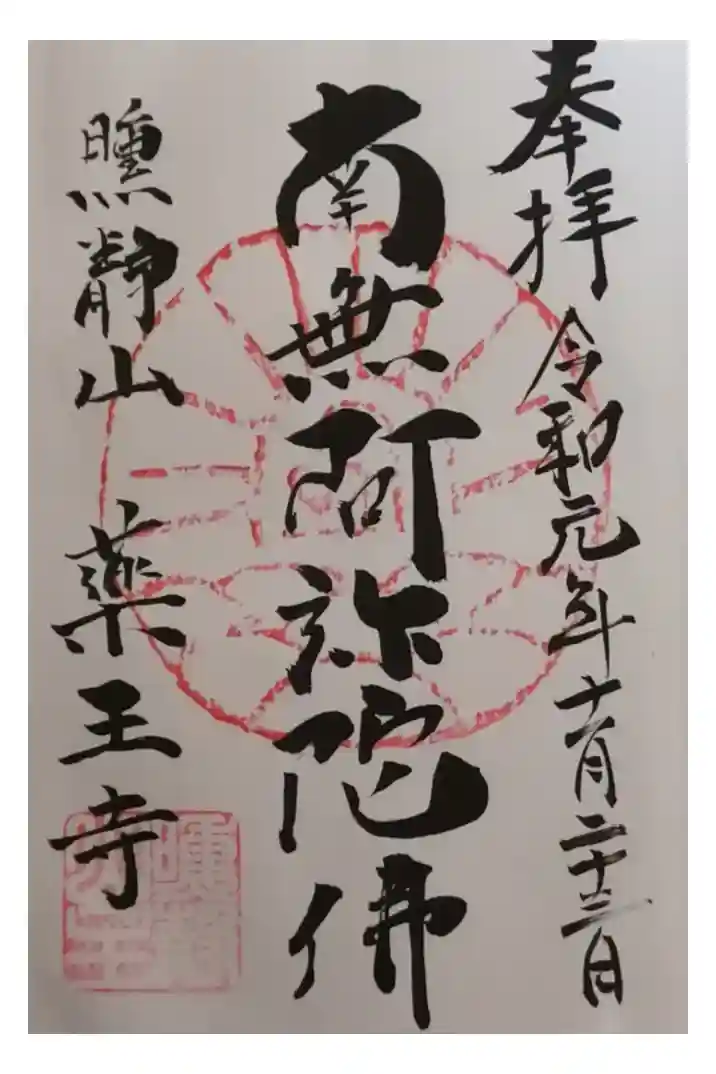 奉拝 令和元年十一月二十三日
南無阿弥陀佛
曛靜山 薬王寺